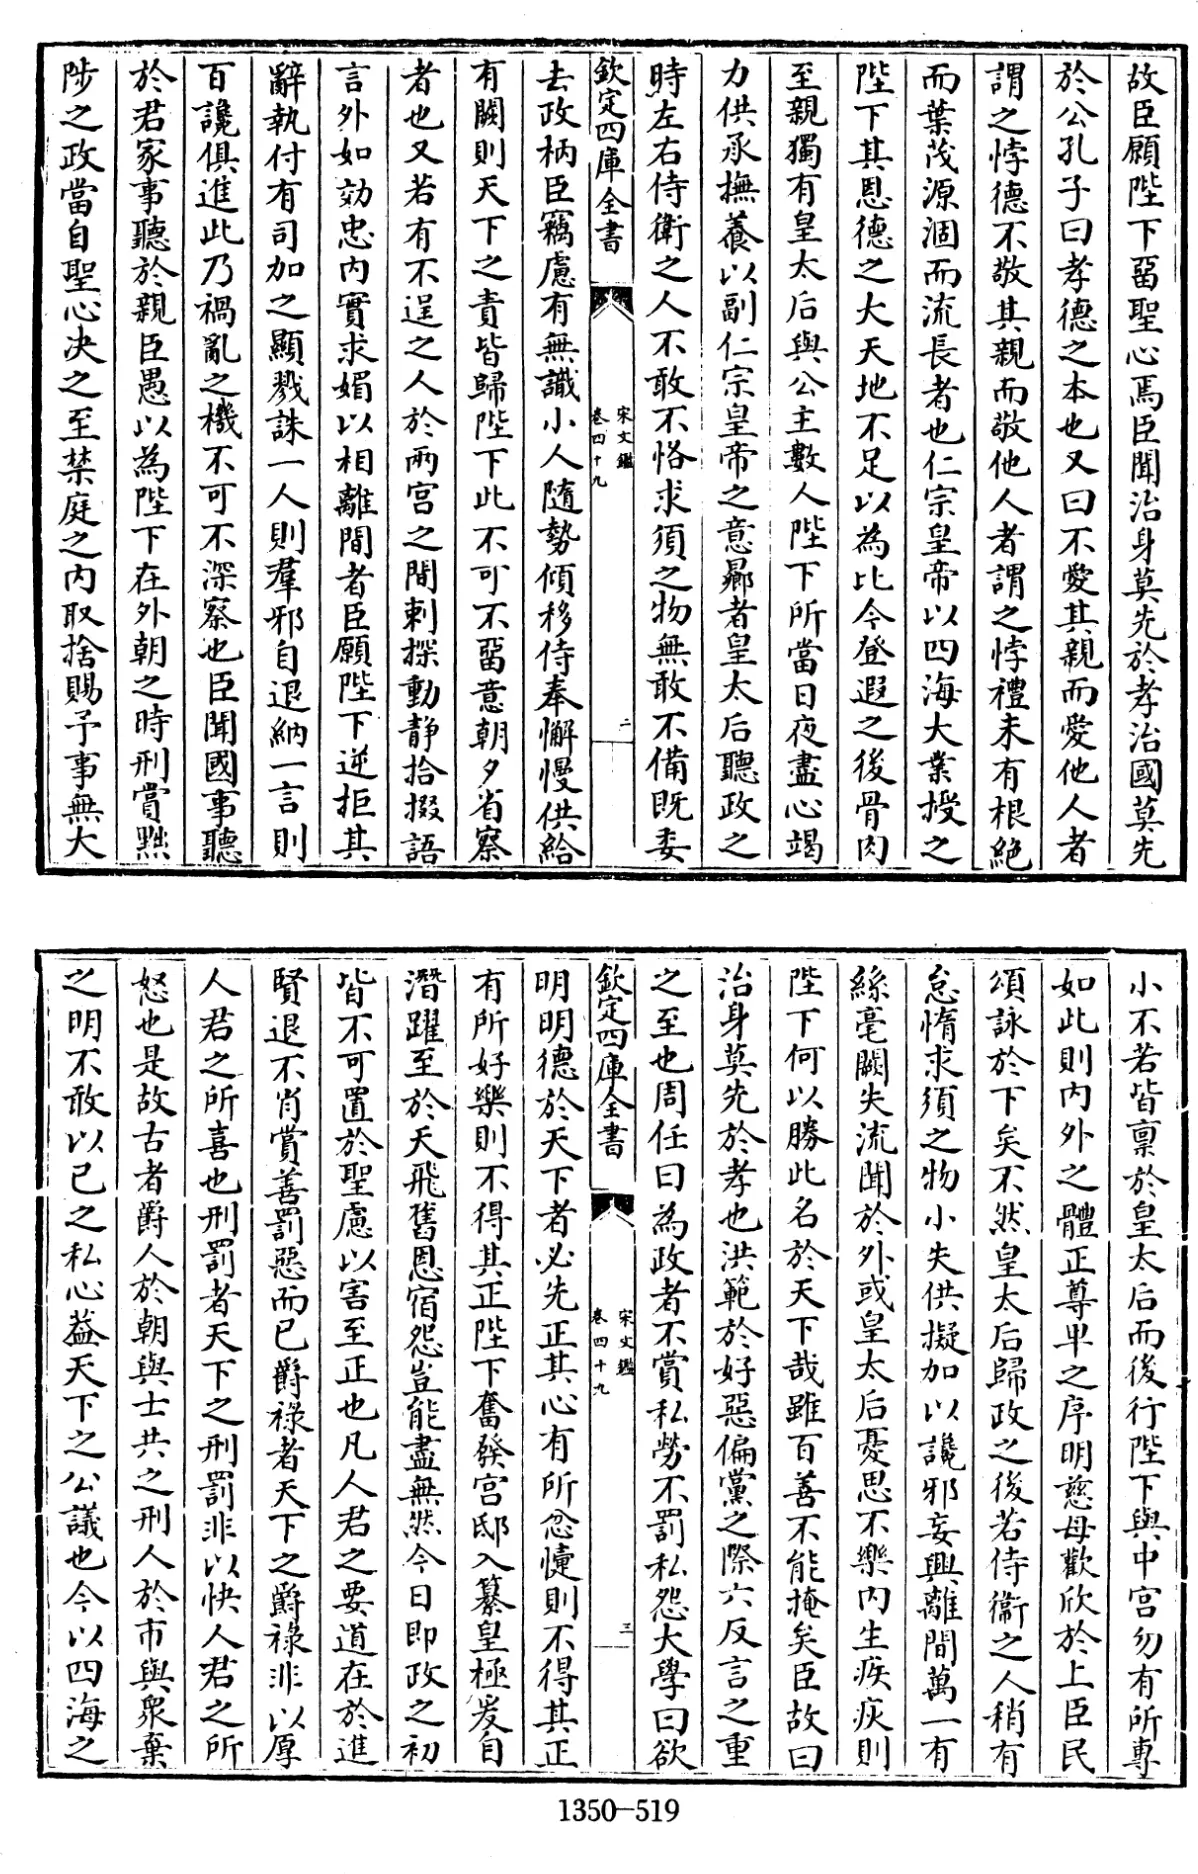 故臣願陛下留聖心焉臣聞治身莫先於孝治國莫先
於公孔子曰孝德之本也又曰不愛其親而愛他人者
謂之悖德不敬其親而敬他人者謂之悖禮未有根絶
而葉茂源涸而流長者也仁宗皇帝以四海大業授之
陛下其恩德之大天地不足以為比今登遐之後骨肉
至親獨有皇太后與公主數人陛下所當日夜盡心竭
力供承撫養以副仁宗皇帝之意曏者皇太后聽政之
時左右侍衛之人不敢不恪求須之物無敢不備既委
欽定四庫全書
宋文鑑
卷四十九
二
去政柄臣竊慮有無識小人隨勢傾移侍奉懈慢供給
有闕則天下之責皆歸陛下此不可不留意朝夕省察
者也又若有不逞之人於兩宫之間刺探動静拾掇語
言外如効忠内實求媚以相離間者臣願陛下逆拒其
辭執付有司加之顯戮誅一人則羣邪自退納一言則
百讒俱進此乃禍亂之機不可不深察也臣聞國事聽
於君家事聽於親臣愚以為陛下在外朝之時刑賞黜
陟之政當自聖心決之至禁庭之内取捨賜予事無大
小不若皆禀於皇太后而後行陛下與中宫勿有所專
如此則内外之體正尊卑之序明慈母歡欣於上臣民
頌詠於下矣不然皇太后歸政之後若侍衞之人稍有
怠惰求須之物小失供擬加以讒邪妄興離間萬一有
絲毫闕失流聞於外或皇太后憂思不樂内生疾疢則
陛下何以勝此名於天下哉雖百善不能掩矣臣故曰
治身莫先於孝也洪範於好惡偏黨之際六反言之重
之至也周任曰為政者不賞私勞不罰私怨大學曰欲
欽定四庫全書
宋文鑑
卷四十九
三
明明德於天下者必先正其心有所忿懥則不得其正
有所好樂則不得其正陛下奮發宫邸入纂皇極爰自
潛躍至於天飛舊恩宿怨豈能盡無然今日即政之初
皆不可置於聖慮以害至正也凡人君之要道在於進
賢退不肖賞善罰惡而已爵祿者天下之爵祿非以厚
人君之所喜也刑罰者天下之刑罰非以快人君之所
怒也是故古者爵人於朝與士共之刑人於市與衆棄
之明不敢以已之私心葢天下之公議也今以四海之
1350-519